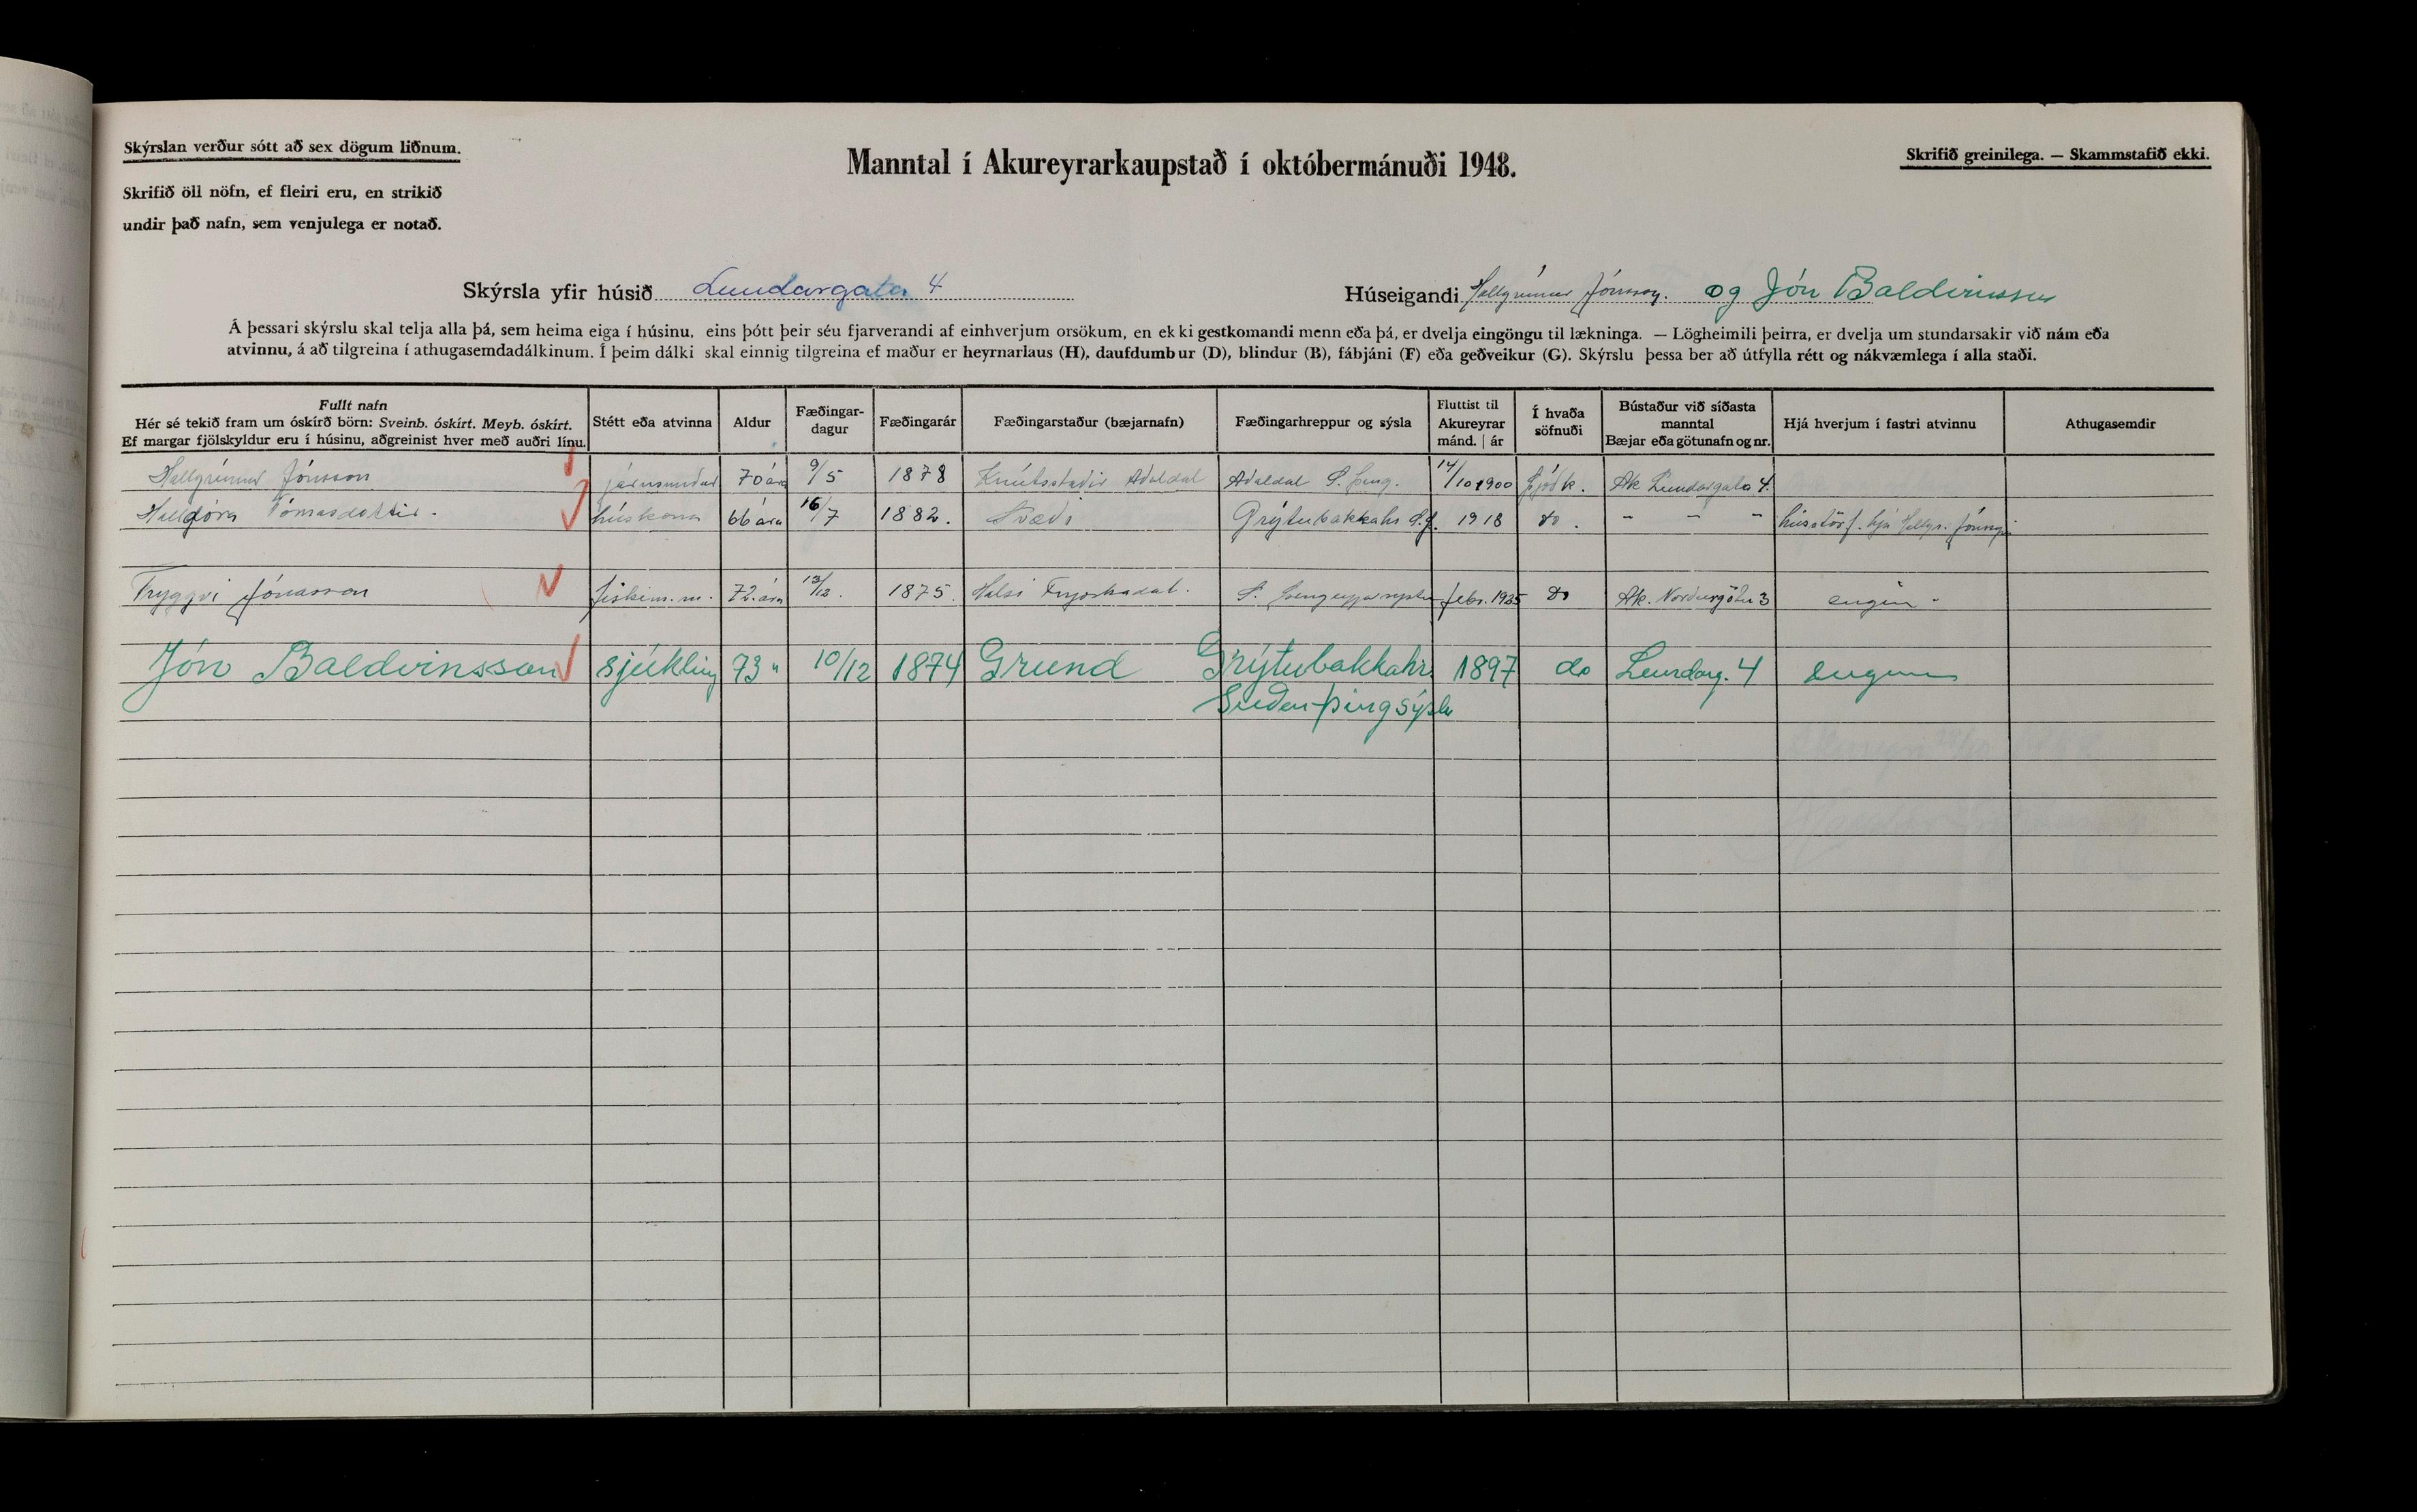 Skýrslan verður sótt að sex dögum liðnum.
Manntal í Akureyrarkaupstað í októbermánuði 1948.
Skrifið greinilega. — Skammstafið ekki.
Skrifið öll nöfn, ef fleiri eru, en strikið
undir það nafn, sem venjulega er notað.
Skýrsla yfir húsið Lundargata 4
Húseigandi Hallgrímur Jónsson. og Jón Baldvinsson
Á þessari skýrslu skal telja alla þá, sem heima eiga í húsinu, eins þótt þeir séu fjarverandi af einhverjum orsökum, en ekki gestkomandi menn eða þá, er dvelja eingöngu til lækninga. — Lögheimili þeirra, er dvelja um stundarsakir við nám eða
atvinnu, á að tilgreina í athugasemdadálkinum. Í þeim dálki skal einnig tilgreina ef maður er heyrnarlaus (H), daufdumbur (D), blindur (B), fábjáni (F) eða geðveikur (G). Skýrslu þessa ber að útfylla rétt og nákvæmlega í alla staði.
Fullt nafn
Hér sé tekið fram um óskírð börn: Sveinb. óskírt. Meyb. óskírt.
Ef margar fjölskyldur eru í húsinu, aðgreinist hver með auðri línu.
Stétt eða atvinna
Aldur
Fæðingar-
dagur
Fæðingarár
Fæðingarstaður (bæjarnafn)
Fæðingarhreppur og sýsla
Fluttist til
Akureyrar
mánd. | ár
Í hvaða
söfnuði
Bústaður við síðasta
manntal
Bæjar eða götunafn og nr.
Hjá hverjum í fastri atvinnu
Athugasemdir
Hallgrímur Jónsson járnsmiður 70 ára 9/5 1878 Knútsstaðir Aðaldal Aðaldal S. Þing. 14/10 1900 Þjóðk. Ak Lundargata 4.
Halldóra Tómasdóttir. húskona 66 ára 16/7 1882. Svæði Grýtubakkahr S.Þ. 1918 do. - - - hússtörf. hjá Hallgr. Jónssyni
Tryggvi Jónasson fiskim.m. 72 ára 13/12. 1875. Hálsi Fnjóskadal. S. Þingeyjarsýslu febr. 1925 do Ak. Norðurgötu 3 engin
Jón Baldvinsson sjúkling 73 " 10/12 1874 Grund Grýtubakkahr. 1897 do Lundarg. 4 engin
Suður-þingsýslu